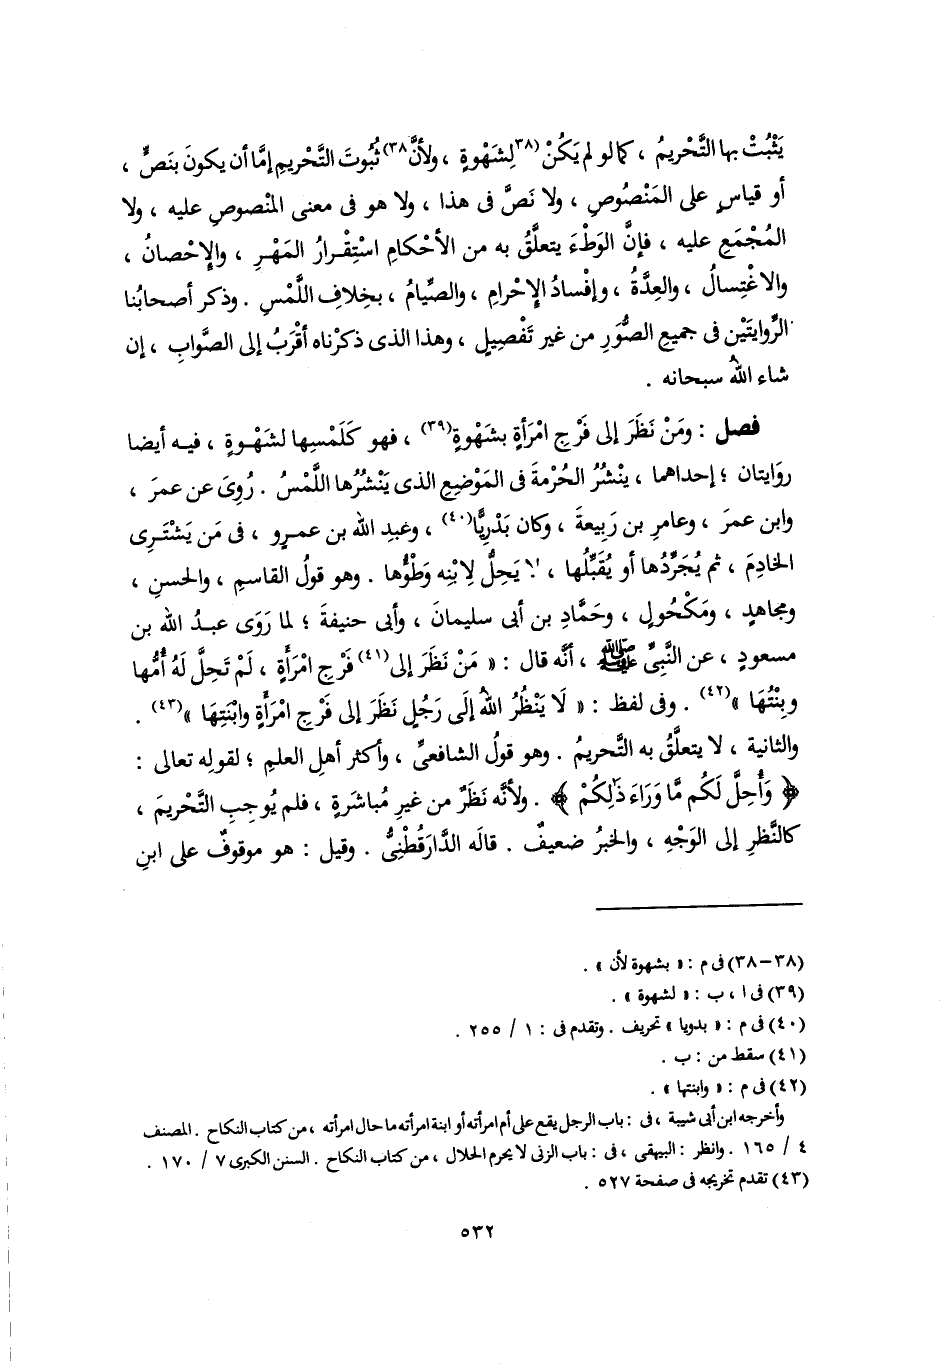 يَثْبُتْ بها التَّحْريمُ ، كما لو لم يَكُنْ (٣٨لِشَهْوةٍ ، ولأنَّ٣٨) ثُبُوتَ التَّحْريمِ إمَّا أن يكونَ بنَصٍّ ،
أو قياسٍ على المَنْصُوصِ ، ولا نَصَّ فى هذا ، ولا هو فى معنى المنْصوصِ عليه ، ولا
المُجْمَعِ عليه ، فإنَّ الوَطْءَ يتعلَّقُ به من الأحْكامِ اسْتِقْرارُ المَهْرِ ، والإِحْصانُ ،
والاغْتِسالُ ، والعِدَّةُ ، وإفْسادُ الإِحْرامِ ، والصِّيامُ ، بخِلافِ اللَّمْسِ . وذكر أصحابُنا
الرِّوايَتَيْن فى جميعِ الصُّوَرِ من غير تَفْصِيلٍ ، وهذا الذى ذكرْناه أقْرَبُ إلى الصَّوابِ ، إن
شاء اللهُ سبحانه .
فصل : ومَنْ نَظَرَ إلى فَرْجِ امْرَأةٍ بشَهْوةٍ(٣٩) ، فهو كَلَمْسِها لشَهْوةٍ ، فيه أيضا
روَايتان ؛ إحداهما ، ينْشُرُ الحُرْمةَ فى المَوْضِعِ الذى يَنْشُرُها اللَّمْسُ . رُوِىَ عن عمرَ ،
وابن عمرَ ، وعامرِ بن رَبِيعةَ ، وكان بَدْرِيًّا(٤٠) ، وعبدِ الله بن عمرٍو ، فى مَن يَشْتَرِى
الخادِمَ ، ثم يُجَرِّدُها أو يُقَبِّلُها ، لا يَحِلُّ لِابْنِه وَطْؤُها . وهو قولُ القاسمِ ، والحسنِ ،
ومجاهدٍ ، ومَكْحُولٍ ، وحَمَّادِ بن أبى سليمانَ ، وأبى حنيفةَ ؛ لما رَوَى عبدُ الله بن
مسعودٍ ، عن النَّبِىِّ ﷺ ، أنَّه قال : « مَنْ نَظَرَ إلى(٤١) فَرْجِ امْرَأَةٍ ، لَمْ تَحِلَّ لَهُ أُمُّها
وبِنْتُهَا »(٤٢) . وفى لفظ : « لَا يَنْظُرُ اللهُ إلَى رَجُلٍ نَظَرَ إلى فَرْجِ امْرَأةٍ وابْنَتِهَا »(٤٣) .
والثانية ، لا يتعلَّقُ به التَّحريمُ . وهو قولُ الشافعىِّ ، وأكثر أهلِ العلمِ ؛ لقولِه تعالى :
﴿ وَأُحِلَّ لَكُم مَّا وَرَاءَ ذَٰلِكُمْ ﴾ . ولأنَّه نَظَرٌ من غيرِ مُباشَرةٍ ، فلم يُوجِبِ التَّحْريمَ ،
كالنَّظرِ إلى الوَجْهِ ، والخبرُ ضعيفٌ . قالَه الدَّارَقُطْنِىُّ . وقيل : هو موقوفٌ على ابنِ
(٣٨-٣٨) فى م : « بشهوة لأن » .
(٣٩) فى ا ، ب : « لشهوة » .
(٤٠) فى م : « بدويا » تحريف . وتقدم فى : ١ / ٢٥٥ .
(٤١) سقط من : ب .
(٤٢) فى م : « وابنتها » .
وأخرجه ابن أبى شيبة ، فى : باب الرجل يقع على أم امرأته أو ابنة امرأته ما حال امرأته ، من كتاب النكاح . المصنف
٤ / ١٦٥ . وانظر : البيهقى ، فى : باب الزنى لا يحرم الحلال ، من كتاب النكاح . السنن الكبرى ٧ / ١٧٠ .
(٤٣) تقدم تخريجه فى صفحة ٥٢٧ .
٥٣٢